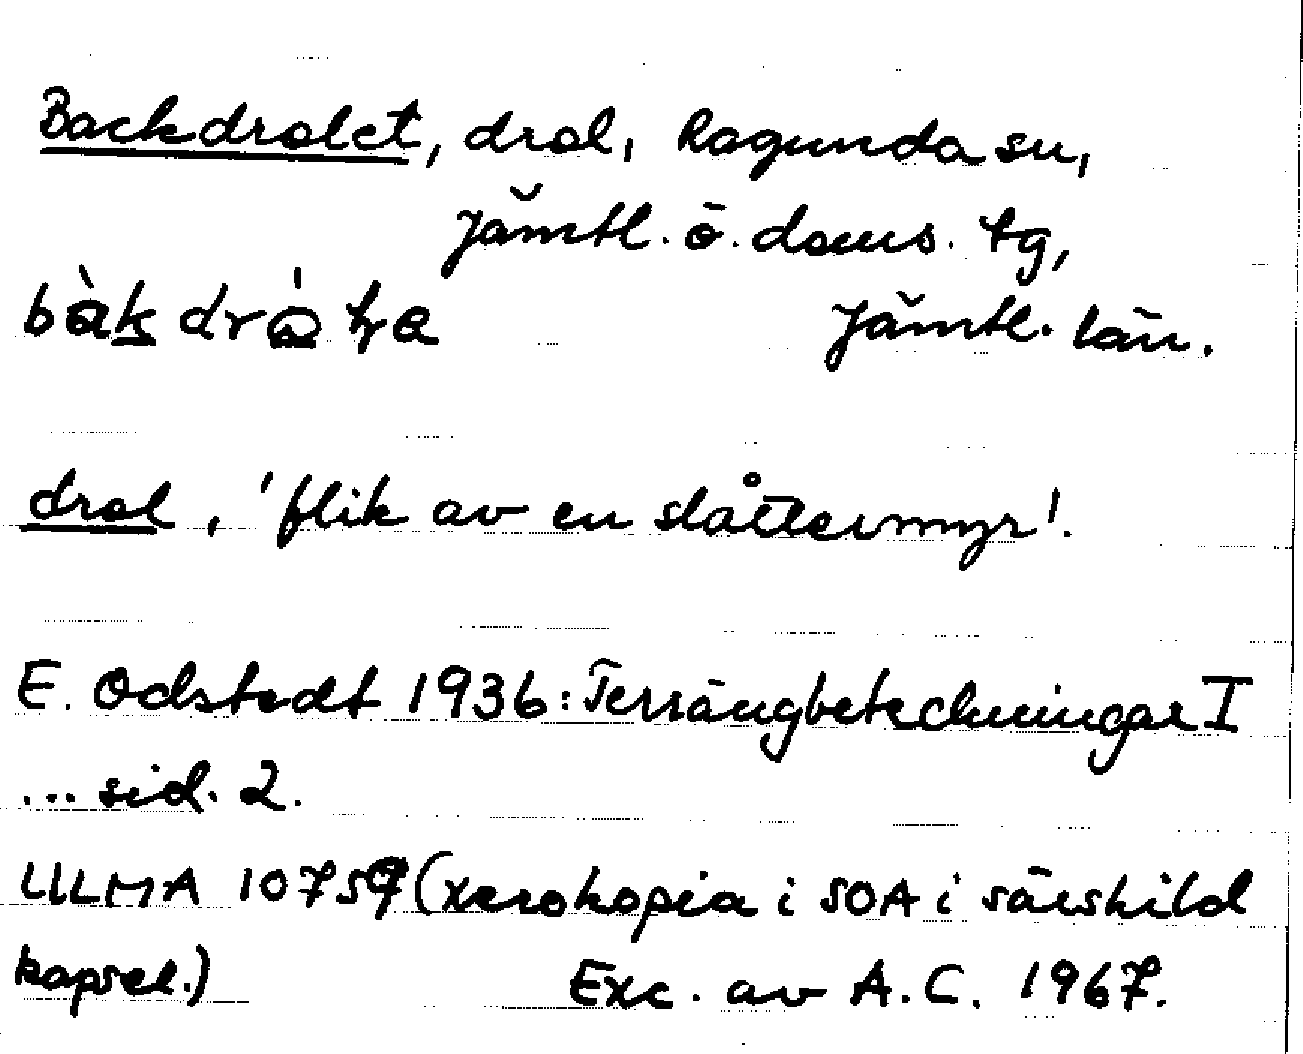 Backdralet, dral, Ragunda sn,
Jämtl. ö. doms. tg,
Jämtl. län.
dral, 'flik av en slåttermyr'.
E. Odstedt 1936: Terrängbeteckningar I
... sid. 2.
ULMA 10759 (xerokopia i SOA i särskild
kapsel.) Exc. av A.C. 1967.